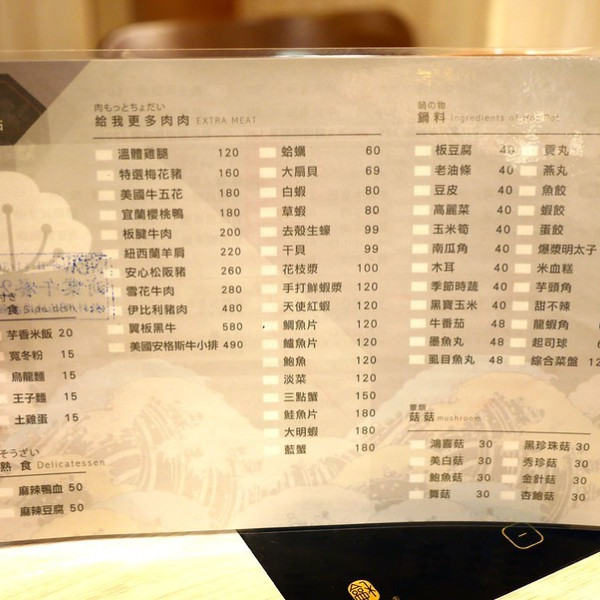 肉もっとちょだい
給我更多肉肉 EXTRA MEAT
溫體雞腿 120
特選梅花豬 160
美國牛五花 180
宜蘭櫻桃鴨 180
板腱牛肉 200
紐西蘭羊肩 220
安心松阪豬 260
雪花牛肉 280
伊比利豬肉 480
翼板黑牛 580
美國安格斯牛小排 490
蛤蠣 60
大扇貝 69
白蝦 80
草蝦 80
去殼生蠔 99
干貝 99
花枝漿 100
手打鮮蝦漿 120
天使紅蝦 120
鯛魚片 120
鱸魚片 120
鮑魚 120
淡菜 120
三點蟹 150
鮭魚片 180
大明蝦 180
藍蟹 180
鍋の物
鍋料 Ingredients of Hot Pot
板豆腐 40
老油條 40
豆皮 40
高麗菜 40
玉米筍 40
南瓜角 40
木耳 40
季節時蔬 40
黑寶玉米 40
牛番茄 48
墨魚丸 48
虱目魚丸 48
貢丸
燕丸
魚餃
蝦餃
蛋餃
爆漿明太子
米血糕
芋頭角
甜不辣
龍蝦角
起司球
綜合菜盤
蕈類
菇菇 mushroom
鴻喜菇 30
美白菇 30
鮑魚菇 30
舞菇 30
黑珍珠菇 30
秀珍菇 30
金針菇 30
杏鮑菇 30
食 Side dish
芋香米飯 20
寬冬粉 15
烏龍麵 15
王子麵 15
土雞蛋 15
そうざい
熟食 Delicatessen
麻辣鴨血 50
麻辣豆腐 50